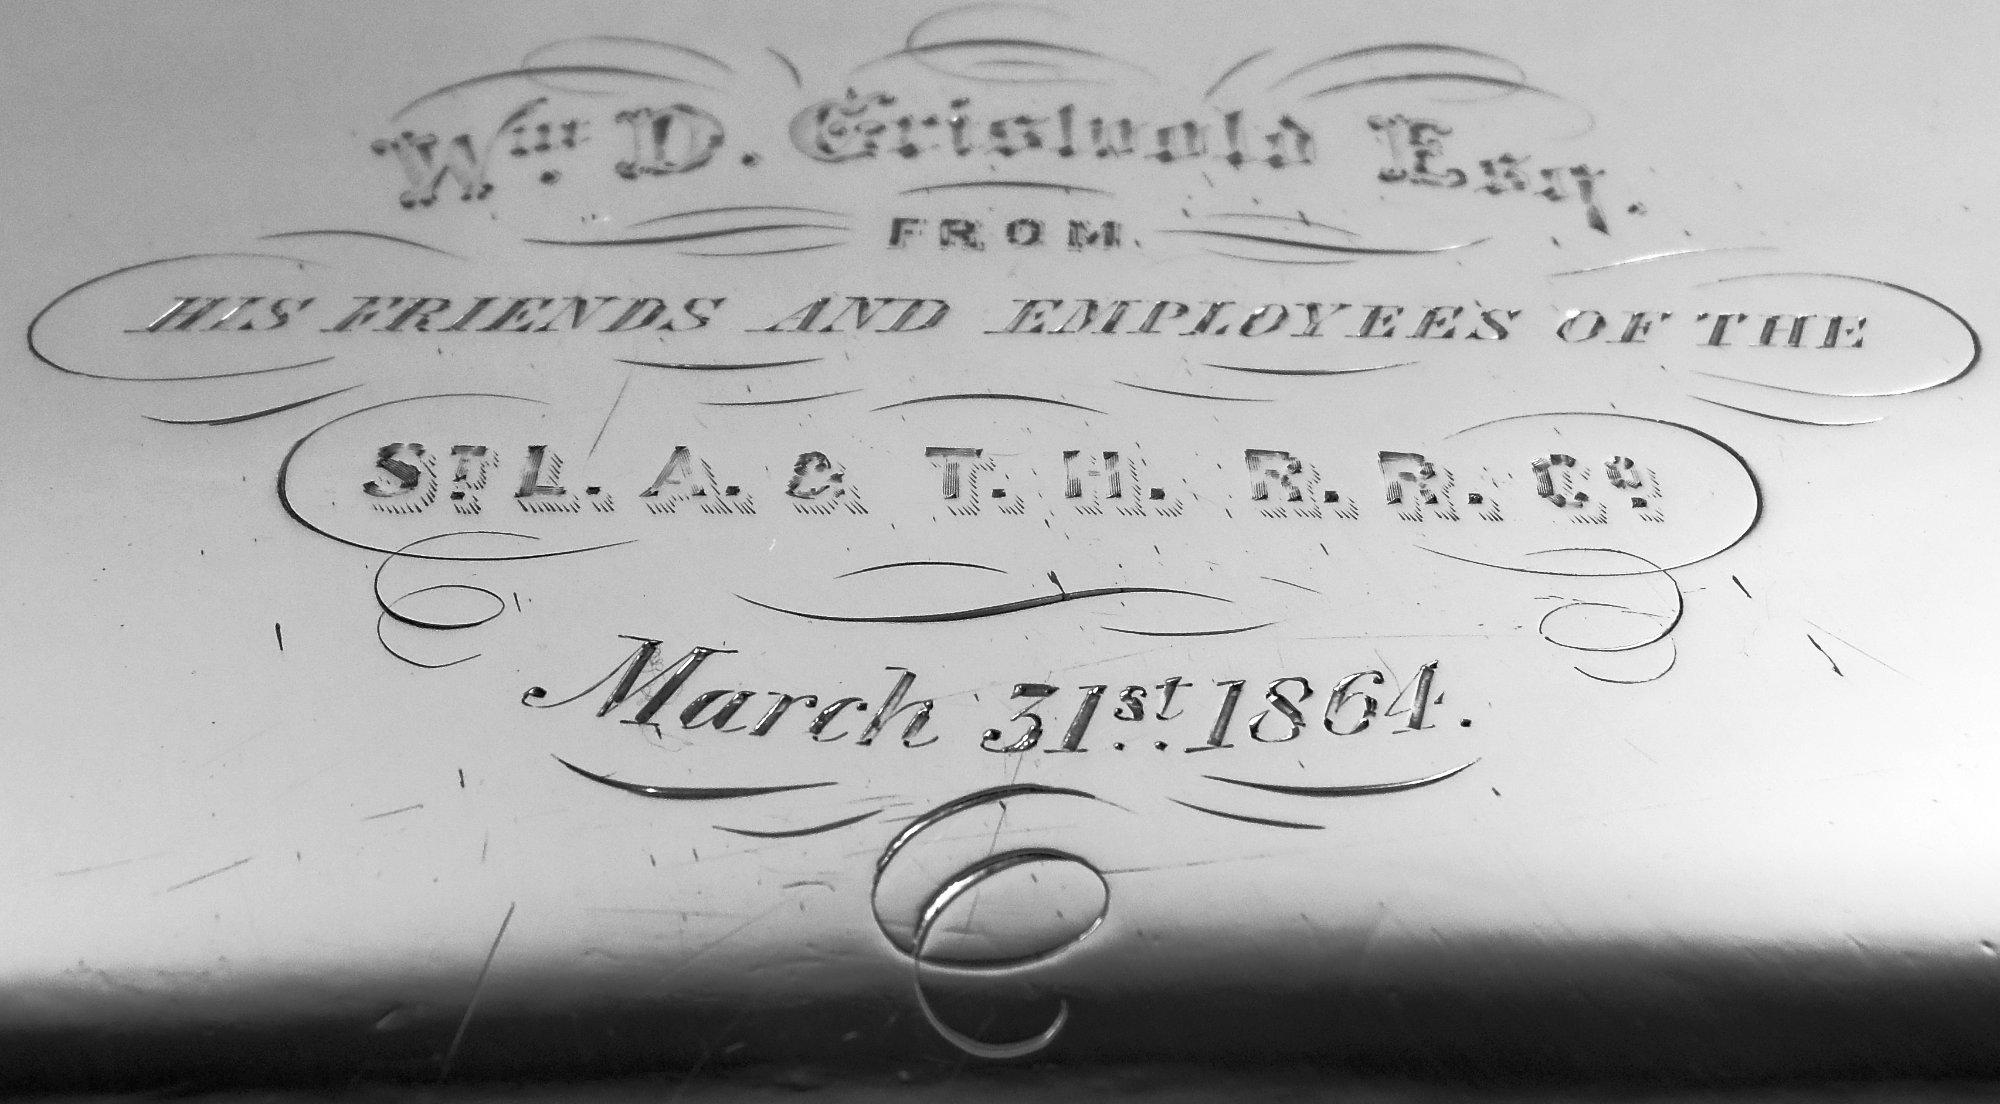 Wm. D. Griswold Esq.
FROM.
HIS FRIENDS AND EMPLOYEES OF THE
ST. L. A. & T. H. R. R. Co.
March 31st. 1864.